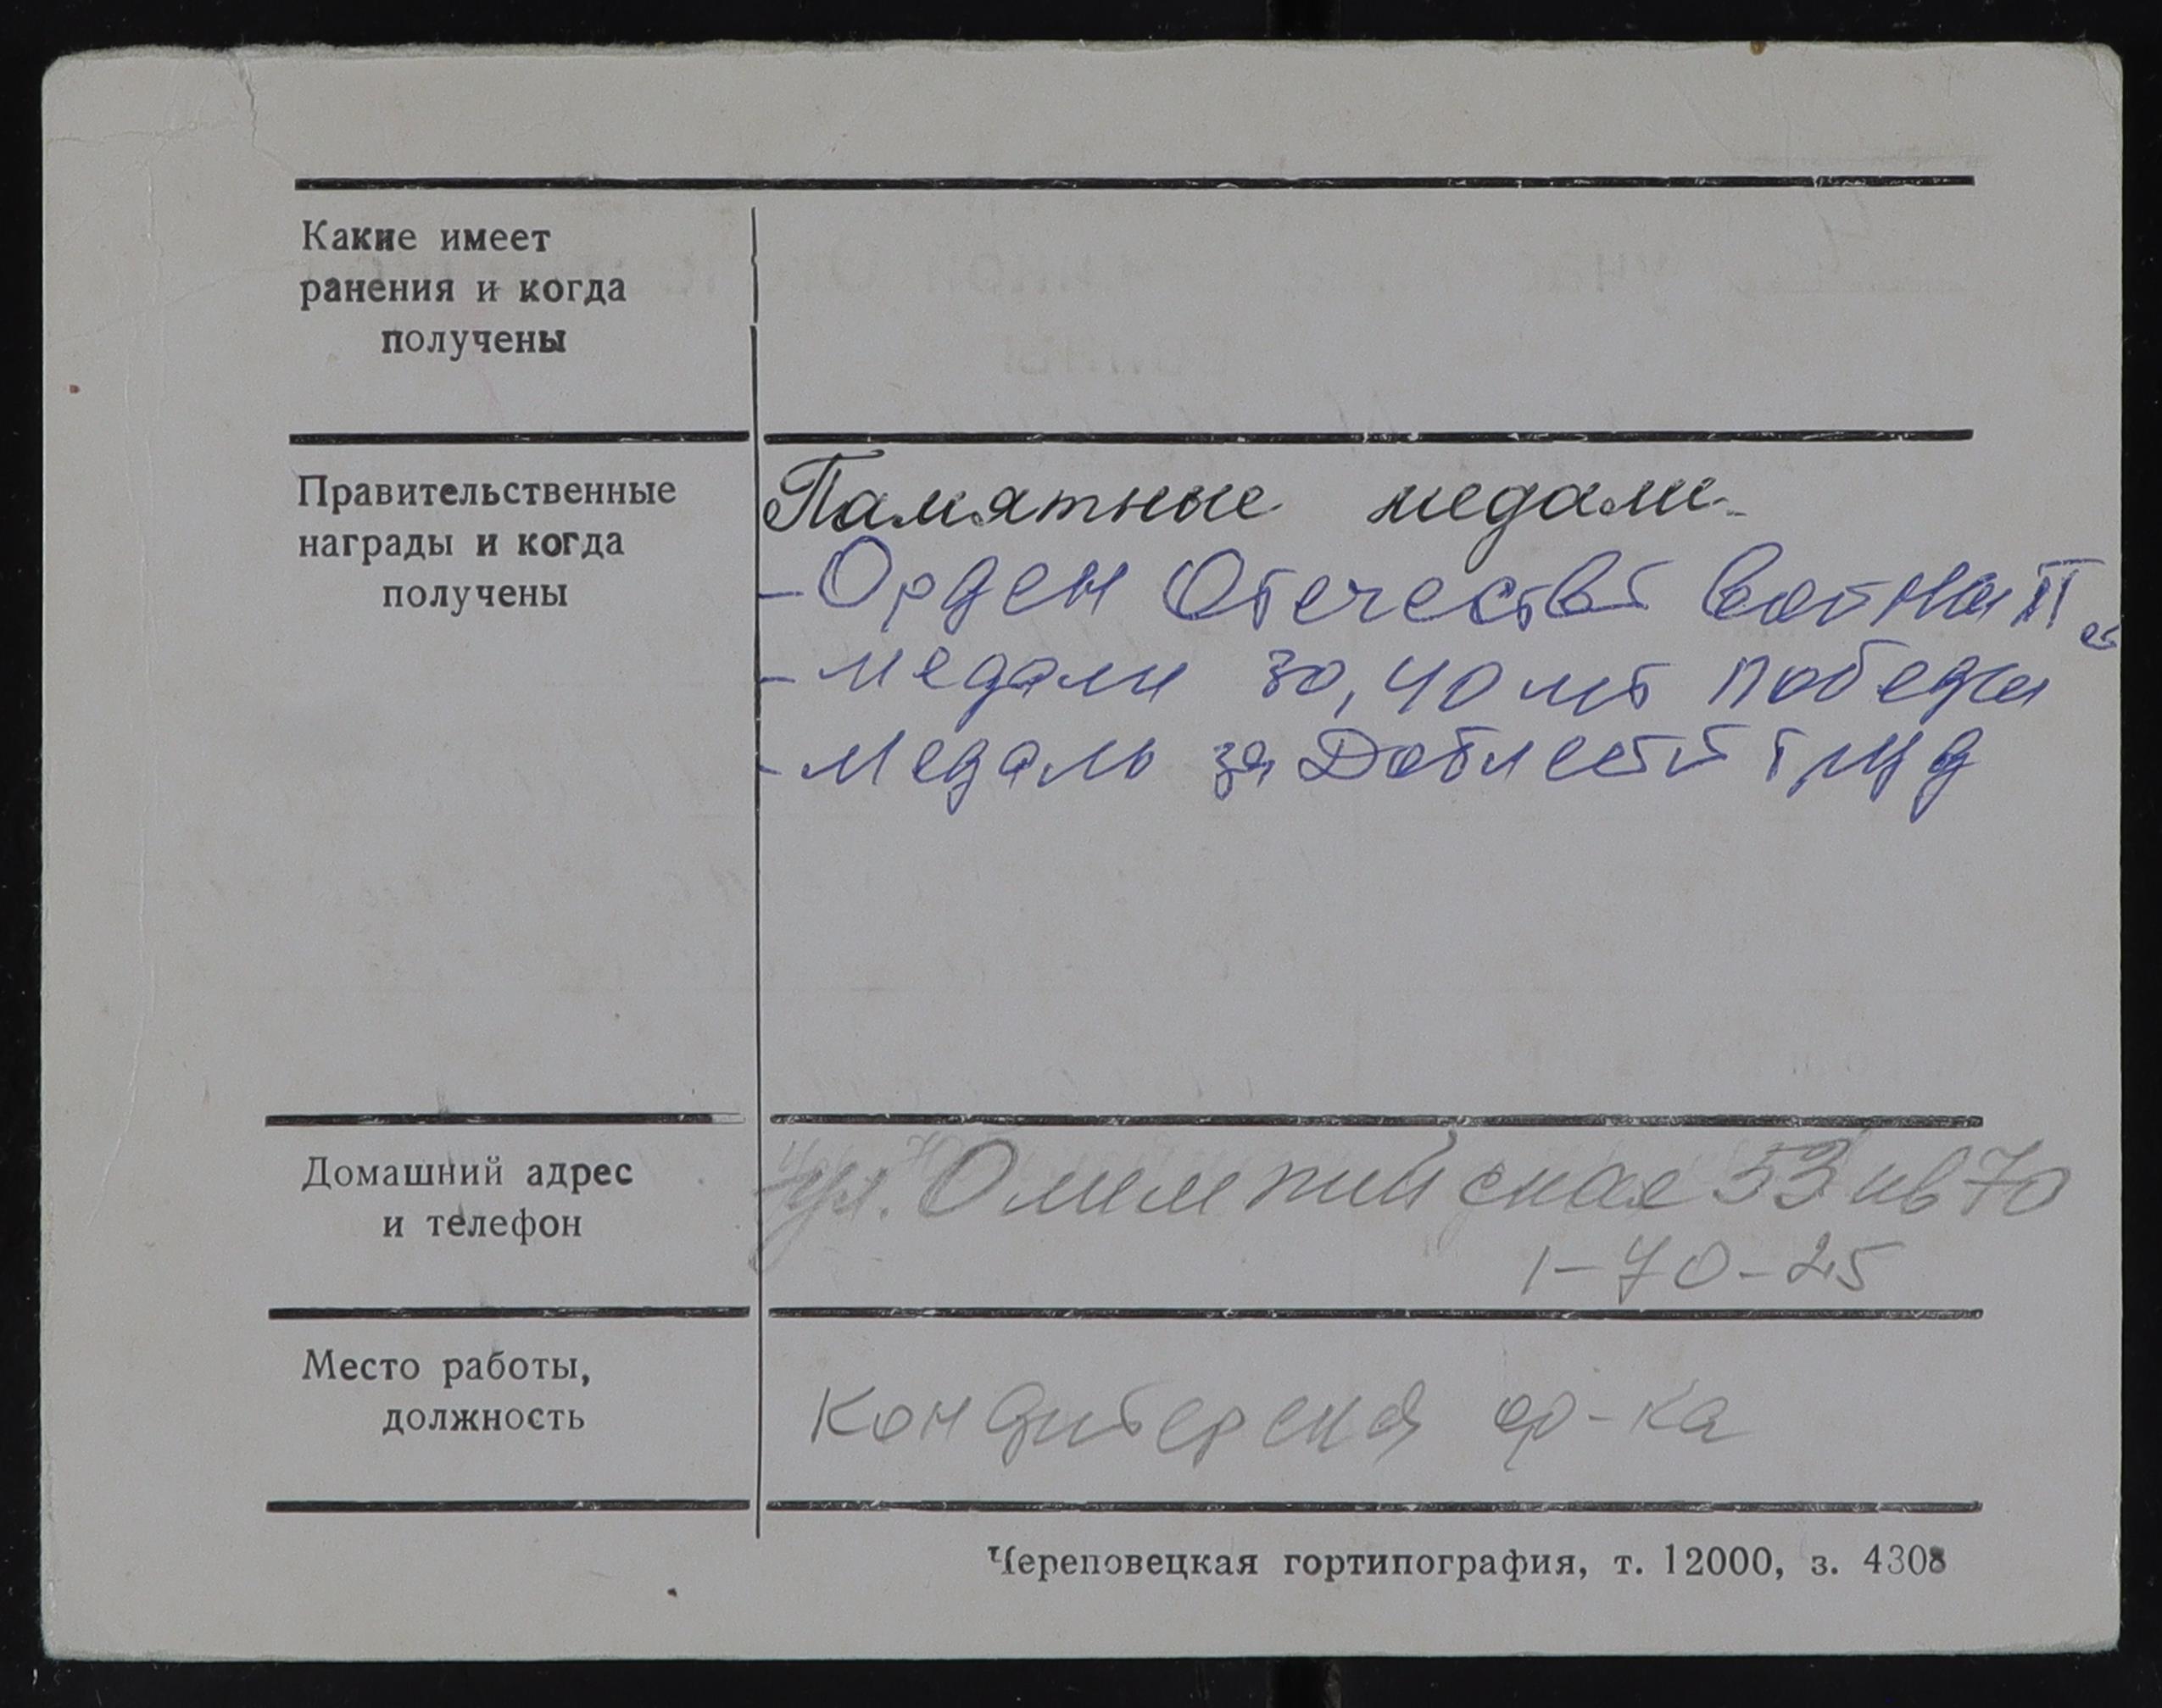 Какие имеет
ранения и когда
получены
Правительственные
награды и когда
получены
Памятные медали
- Орден Отечеств войны II с
- медали 30, 40 лет победы
- Медаль за Доблестй труд
Домашний адрес
и телефон
ул. Олимпийская 53 кв 70
1-70-25
Место работы,
должность
Кондитерская ф-ка
Череповецкая гортипография, т. 12000, з. 4308